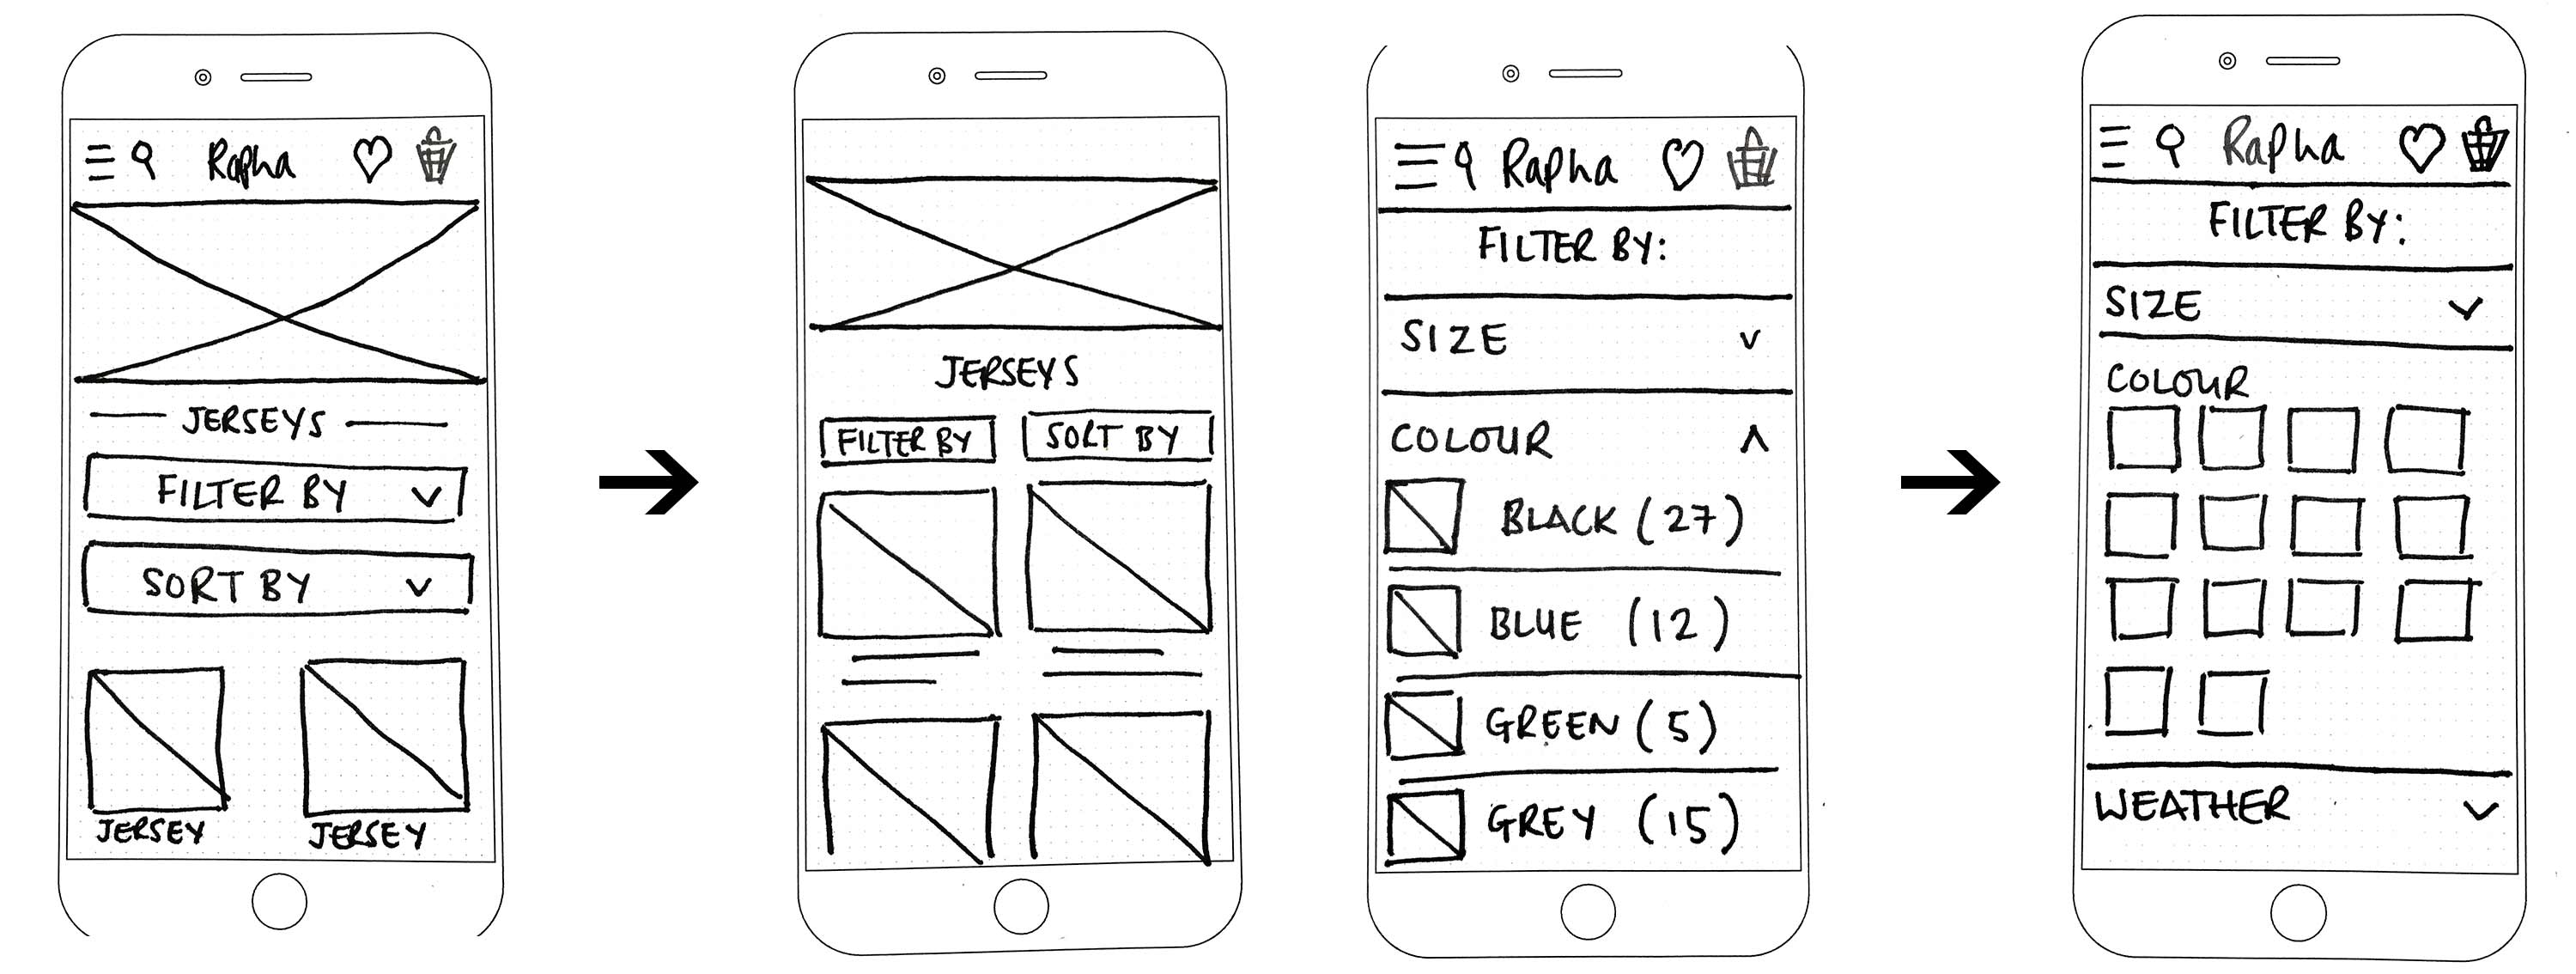 Rapha
JERSEYS
FILTER BY
SORT BY
JERSEY JERSEY
JERSEYS
FILTER BY SORT BY
Rapha
FILTER BY:
SIZE
COLOUR
BLACK (27)
BLUE (12)
GREEN (5)
GREY (15)
Rapha
FILTER BY:
SIZE
COLOUR
WEATHER